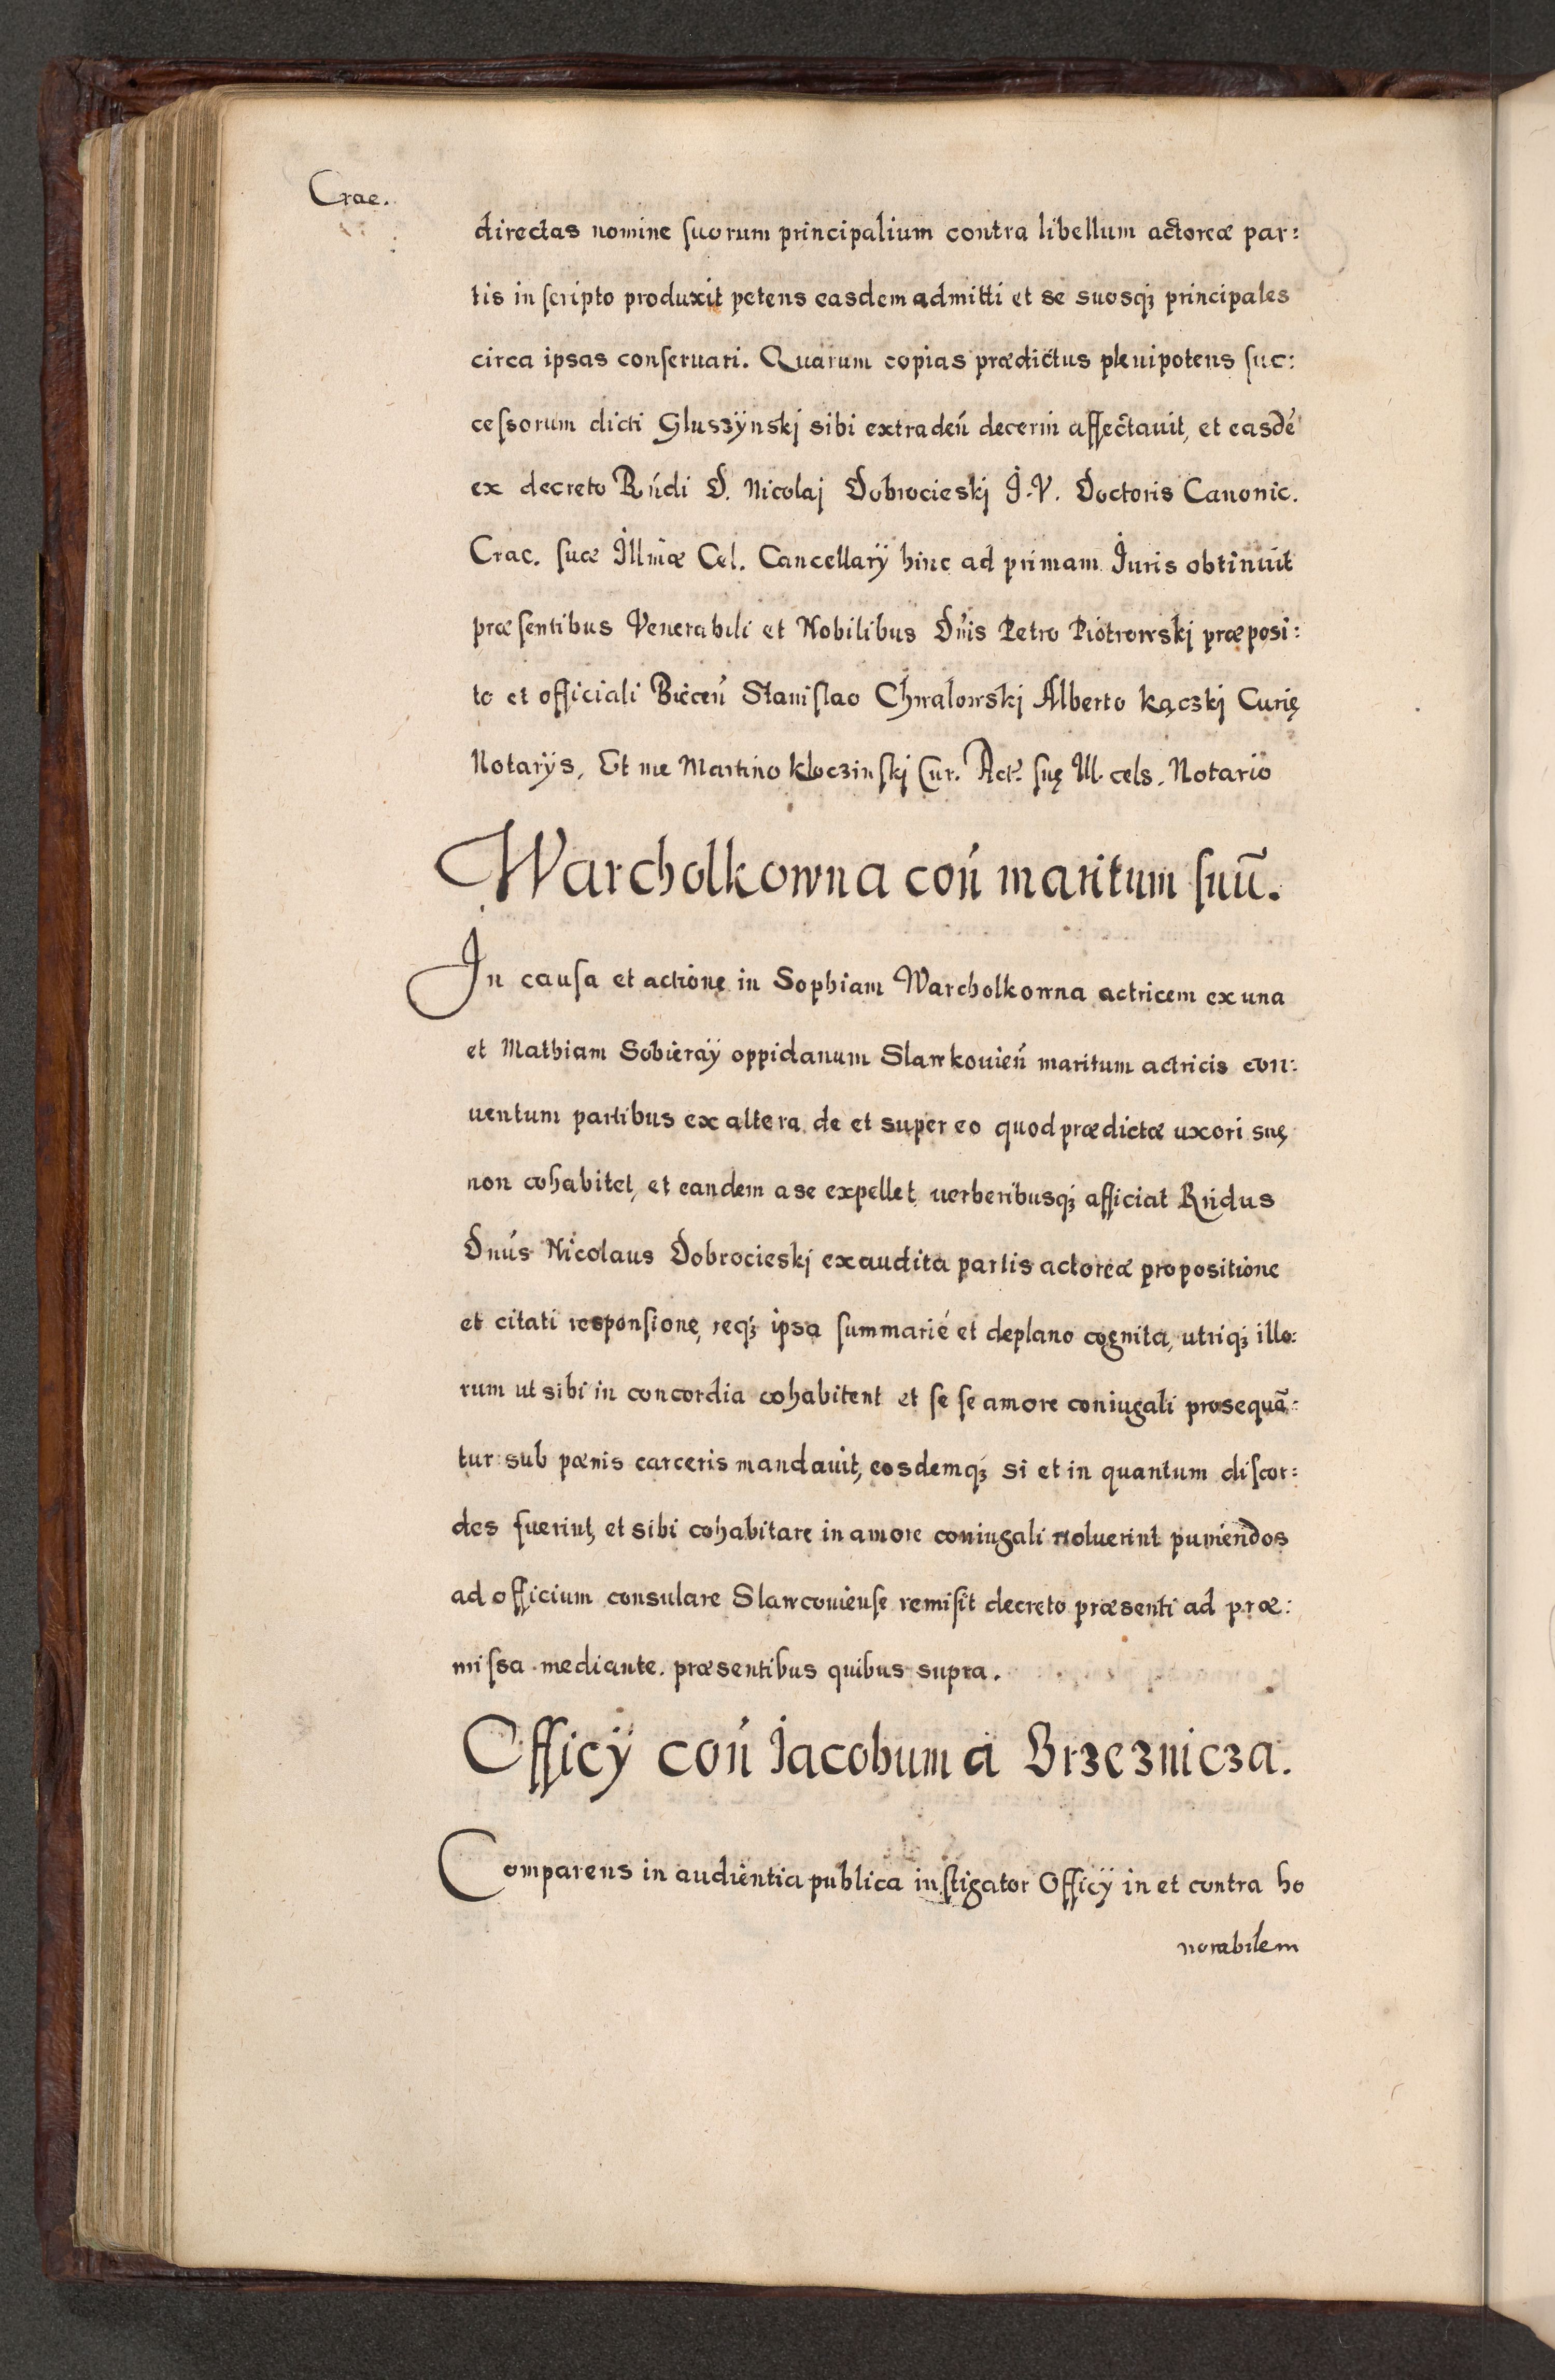 Crac.
directas nomine suorum principalium contra libellum actoreæ par:
tis in scripto produxit petens easdem admitti et se suosq₃ principales
circa ipsas conseruari. Quarum copias prædictus plenipotens suc:
cessorum dicti Gluszÿnskj sibi extradeń decerni affectauit, et easdē
ex decreto Rńdi D. Nicolaj Dobrocieskj J.V. Doctoris Canonic.
Crac. suæ Jllmæ Cel. Cancellarÿ hinc ad primam Juris obtinuit
præsentibus Venerabili et Nobilibus Dńis Petro Piotrowskj præposi:
to et officiali Bieceń Stanislao Chwalowskj Alberto Kączkj Curię
Notarÿs, Et me Martino Kloczinskj Cur. Act. suę Ill. cels. Notario
Warcholkowna coń maritum suū.
In causa et actione in Sophiam Warcholkowna actricem ex una
et Mathiam Sobieraÿ oppidanum Slawkouień maritum actricis con:
uentum partibus ex altera de et super eo quod prædictæ uxori suę
non cohabitet, et eandem a se expellet uerberibusq₃ afficiat Rńdus
Dnús Nicolaus Dobrocieskj exaudita partis actoreæ propositione
et citati responsione, req₃ ipsa summarié et deplano cognita, utriq₃ illo:
rum ut sibi in concordia cohabitent et se se amore coniugali prosequā:
tur sub pœnis carceris mandauit, eosdemq₃ si et in quantum discor:
des fuerint, et sibi cohabitare in amore coniugali noluerint puniendos
ad officium consulare Slawcouiense remisit decreto præsenti ad præ:
missa mediante. præsentibus quibus supra.
Officÿ coń Jacobum á Brzeznicza.
Comparens in audientia publica instigator Officÿ in et contra ho
norabilem